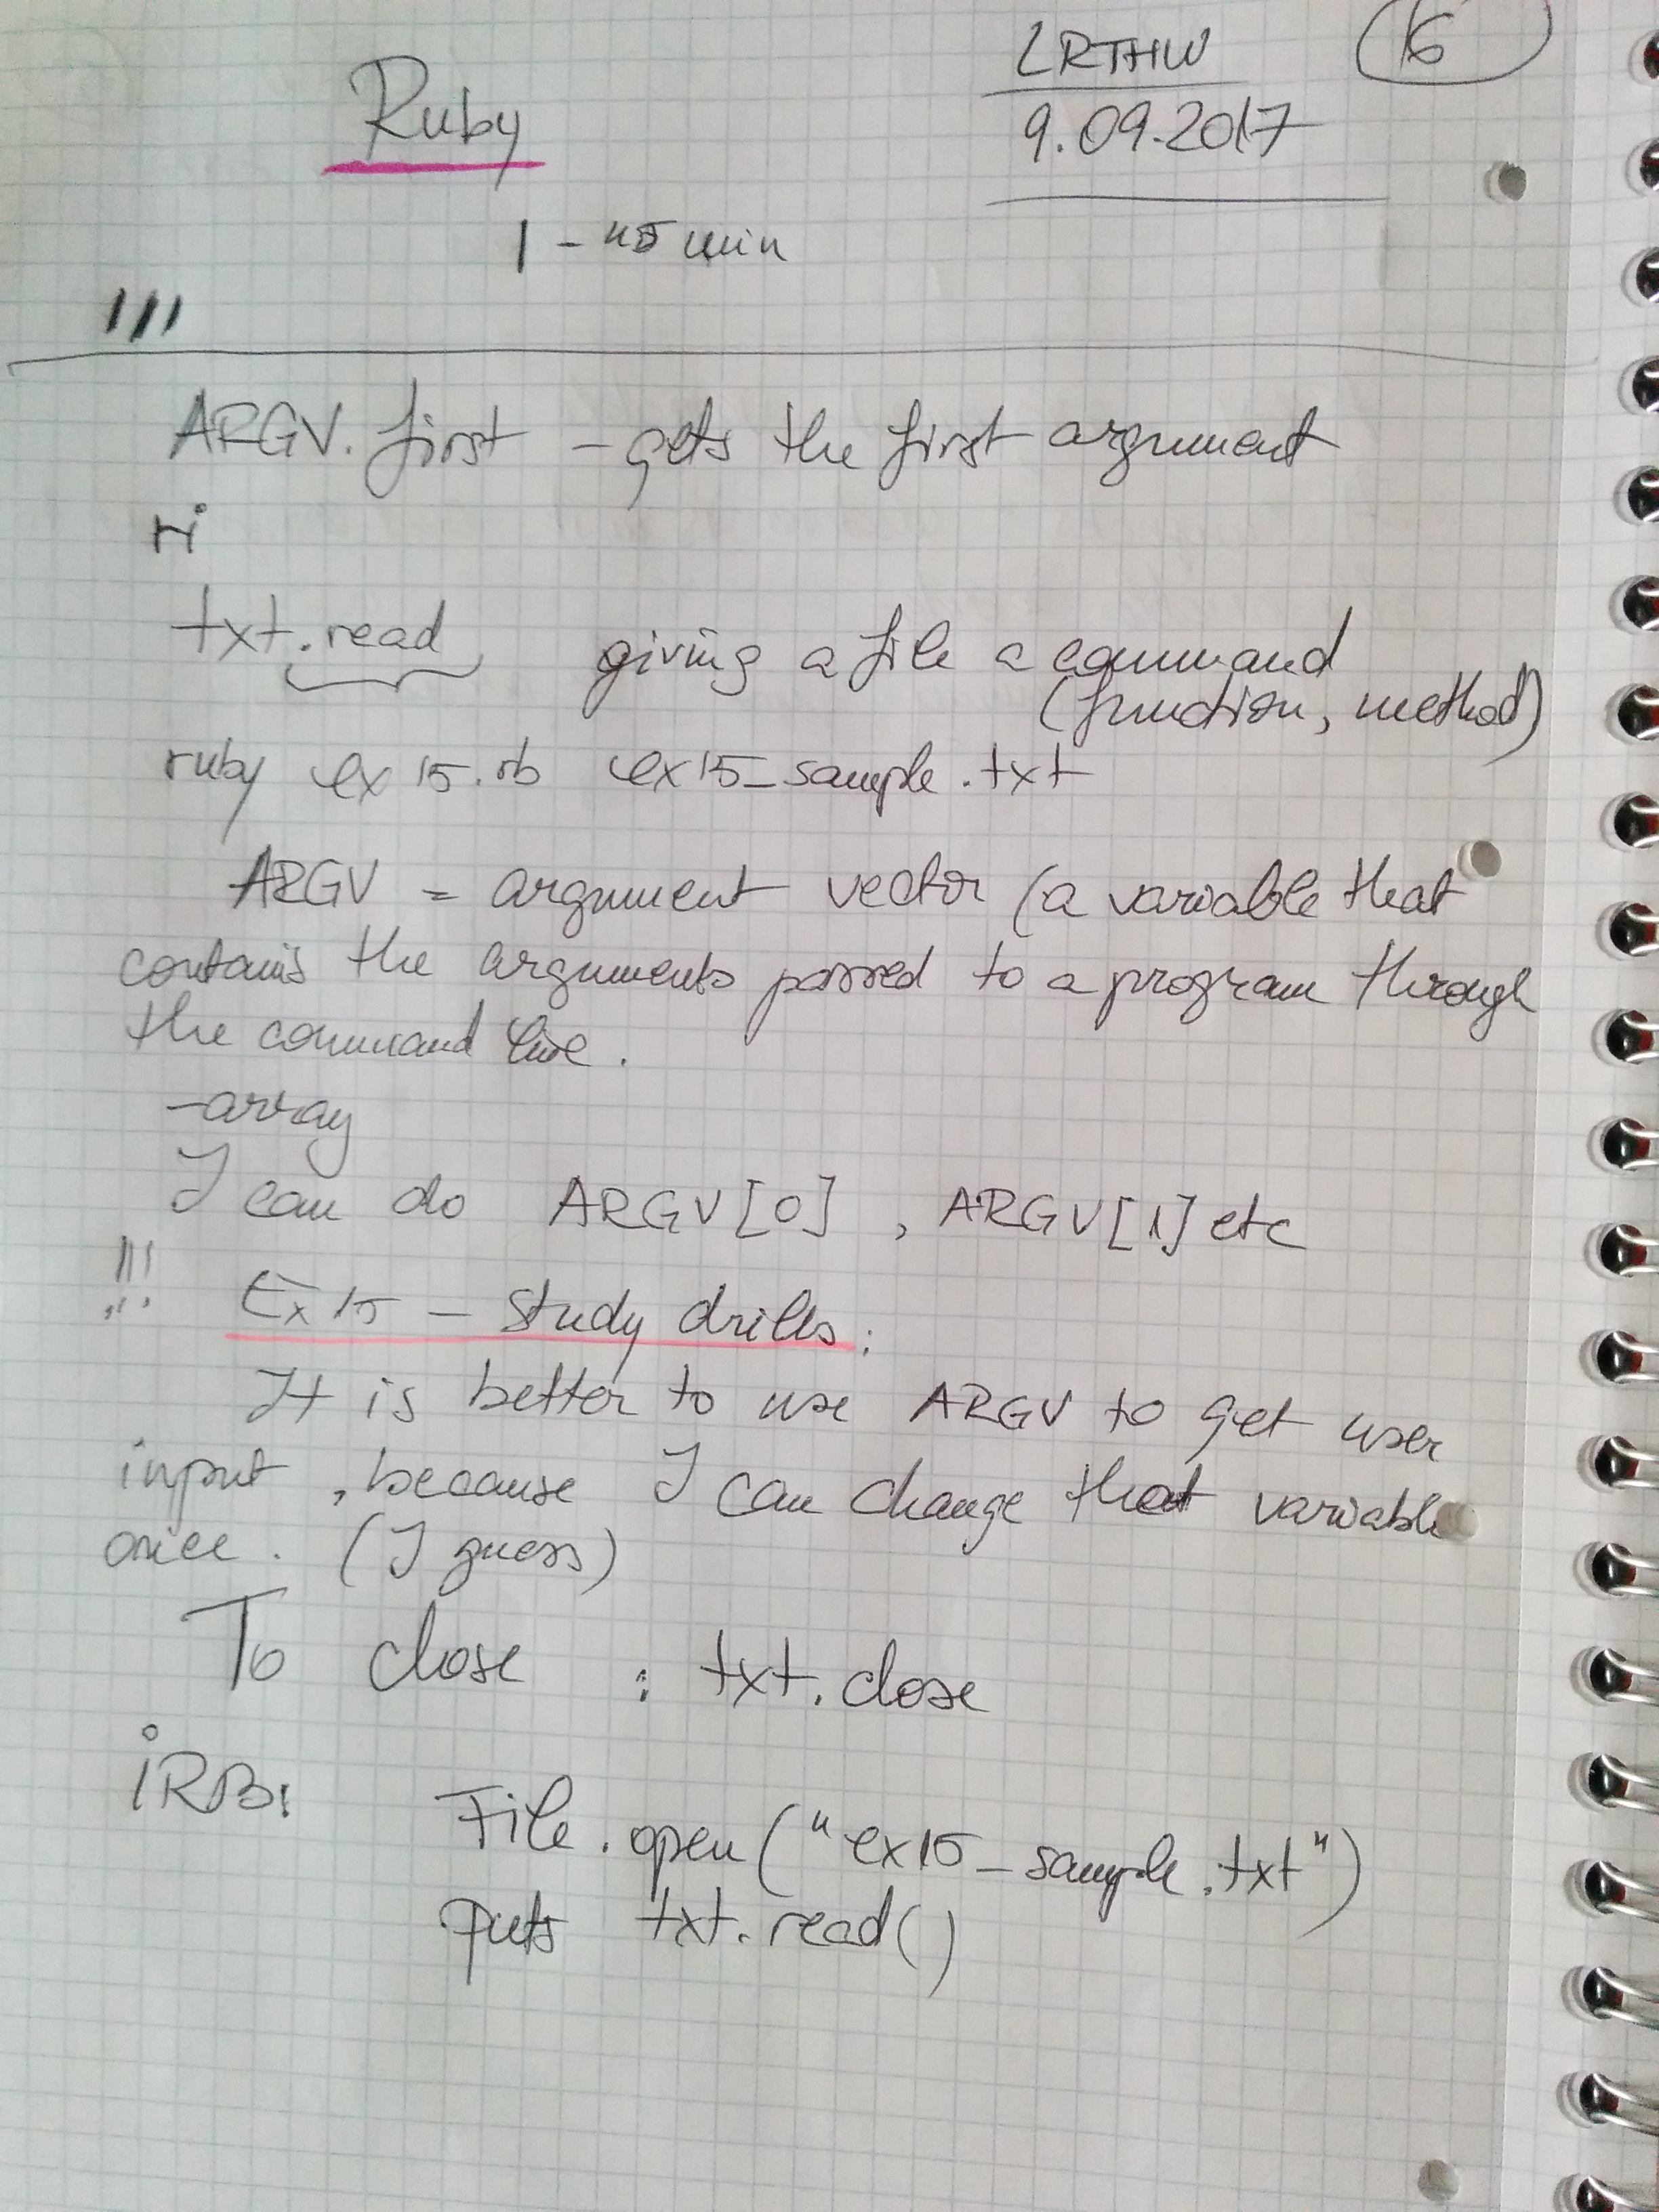 LRTHW
16
Ruby
9.09.2017
1 - 45 min
III
ARGV.first - gets the first argument
ri
txt.read giving a file a command
(function, method)
ruby ex15.rb ex15_sample.txt
ARGV = argument vector (a variable that
contains the arguments passed to a program through
the command line.
-array
I can do ARGV[0], ARGV[1] etc
!!!
Ex15 - Study drills:
It is better to use ARGV to get user
input, because I can change that variable
once. (I guess)
To close : txt.close
iRB:
File.open("ex15_sample.txt")
puts txt.read()